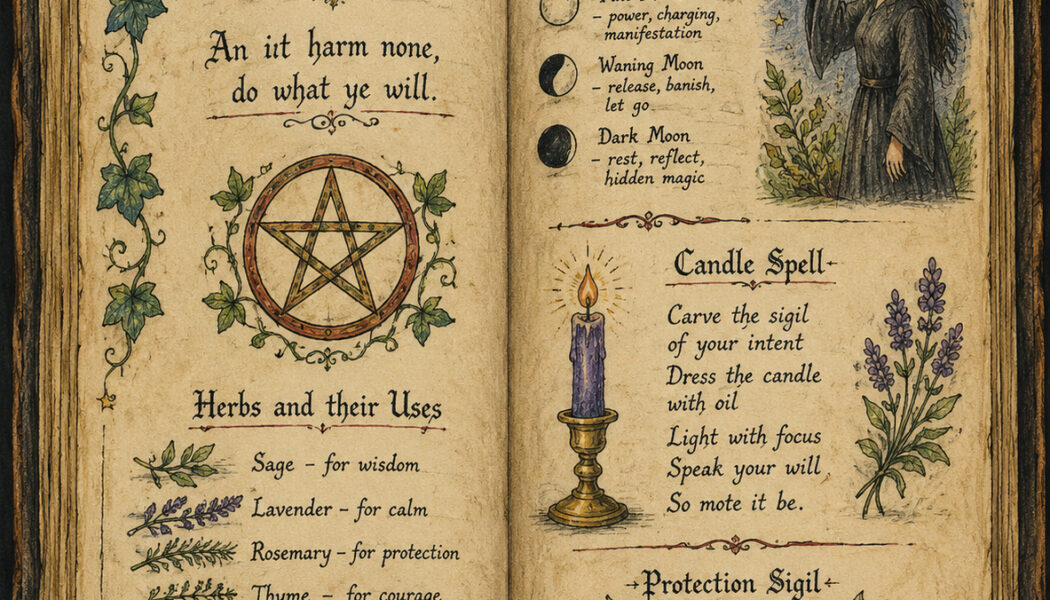 An it harm none,
do what ye will.
Herbs and their Uses
Sage – for wisdom
Lavender – for calm
Rosemary – for protection
Thyme – for courage
– power, charging,
manifestation
Waning Moon
– release, banish,
let go
Dark Moon
– rest, reflect,
hidden magic
Candle Spell
Carve the sigil
of your intent
Dress the candle
with oil
Light with focus
Speak your will
So mote it be.
Protection Sigil